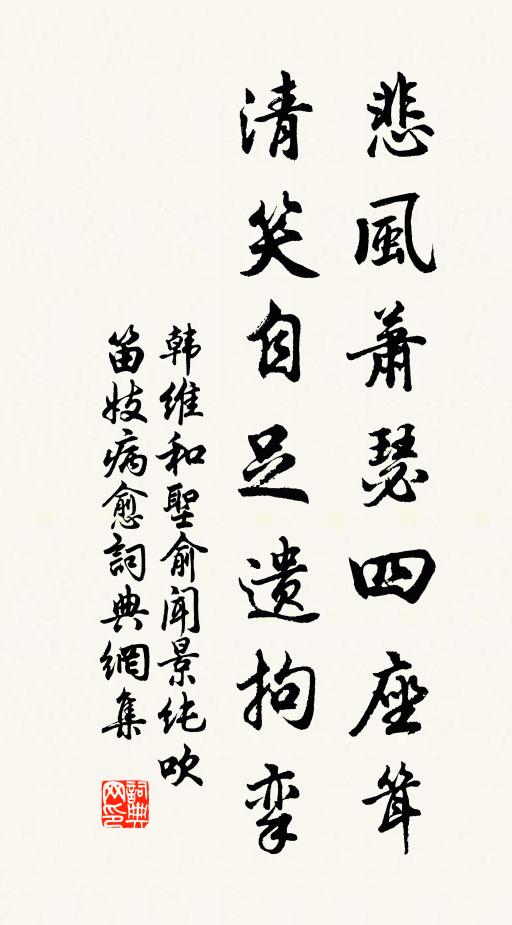 悲風蕭瑟四座聳
清笑自足遺拘挛
韩维和聖俞闻景纯吹
笛妓病愈詞典網集
詞典网印